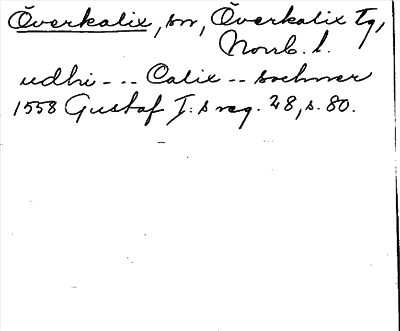 Överkalix, sn, Överkalix tg,
Norrb. l.
udhi --- Calix -- sochner
1558 Gustaf I:s reg. 28, s. 80.